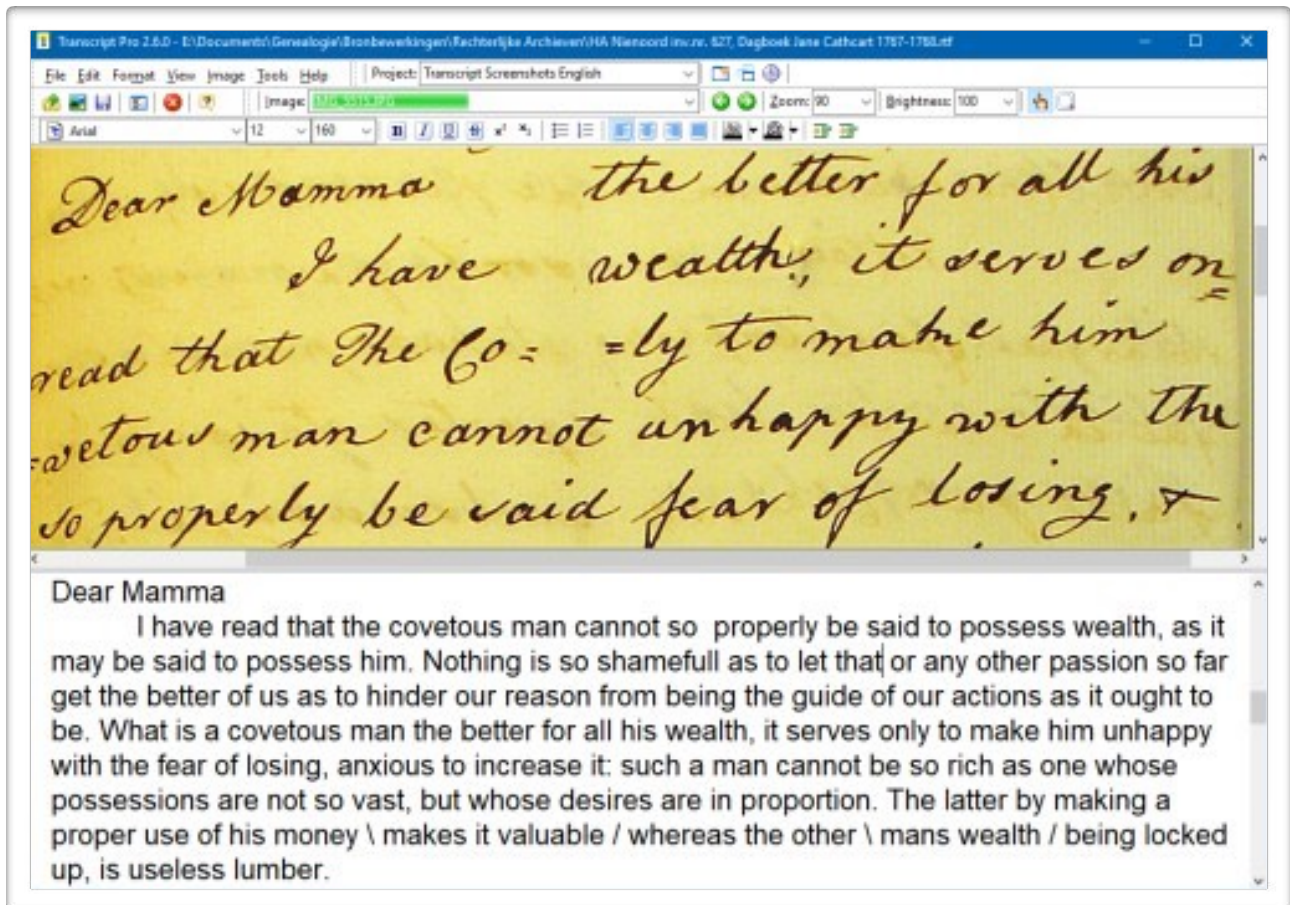 Transcript Pro 2.6.0 - E:\Documents\Genealogie\Bronbewerkingen\Rechterlijke Archieven\HA Nienoord inv.nr. 627, Dagboek Jane Cathcart 1767-1768.rtf
File Edit Format View Image Tools Help Project: Transcript Screenshots English
Image: IMG_5515.JPG Zoom: 90 Brightness: 100
Arial 12 160
Dear Mamma
I have
read that The Co=
=vetous man cannot
so properly be said
the better for all his
wealth, it serves on=
=ly to make him
unhappy with the
fear of losing, &
Dear Mamma
I have read that the covetous man cannot so properly be said to possess wealth, as it
may be said to possess him. Nothing is so shamefull as to let that or any other passion so far
get the better of us as to hinder our reason from being the guide of our actions as it ought to
be. What is a covetous man the better for all his wealth, it serves only to make him unhappy
with the fear of losing, anxious to increase it: such a man cannot be so rich as one whose
possessions are not so vast, but whose desires are in proportion. The latter by making a
proper use of his money \ makes it valuable / whereas the other \ mans wealth / being locked
up, is useless lumber.